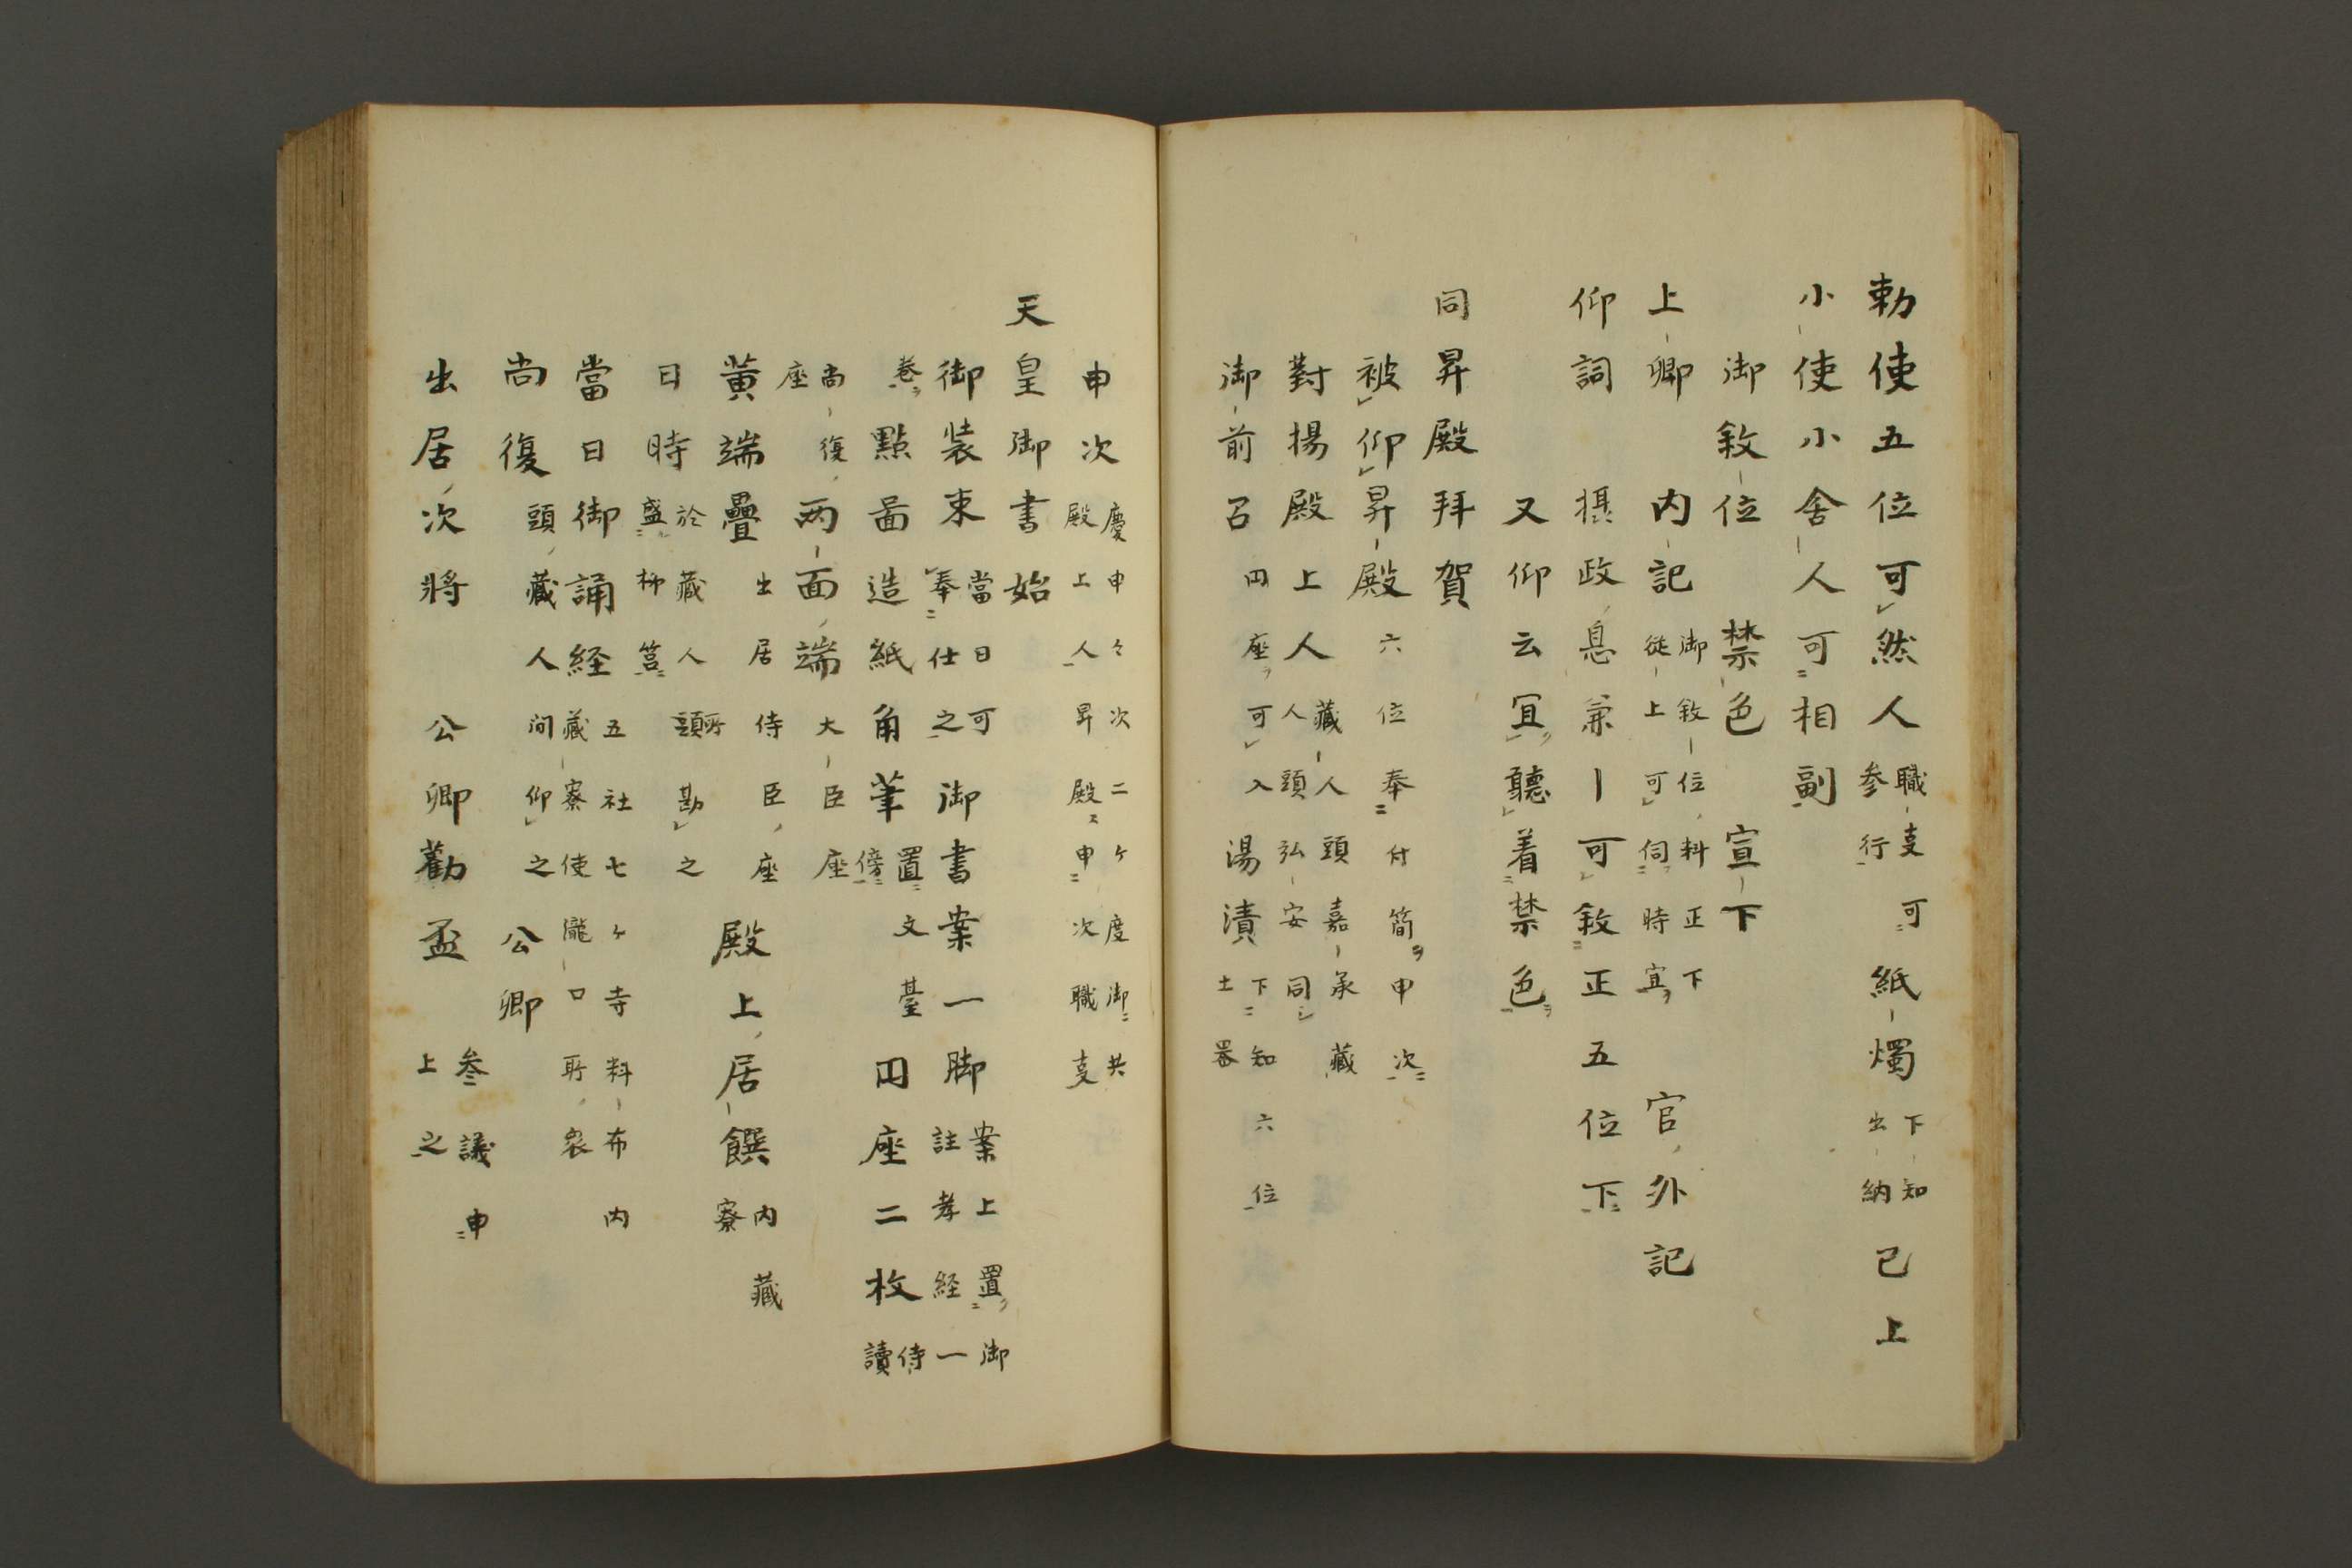 勅使五位可然人職支可参行紙燭下知出納已上
小使小舎人可相副
御敘位禁色宣下
上卿内記御敘位料正下従上可伺時宜官外記
仰詞摂政息兼｜可敘正五位下
又仰云冝聽着禁色
同昇殿拜賀
被仰昇殿六位奉付簡申次
對揚殿上人藏人頭嘉承藏人頭弘安同
御前召円座可入湯漬下知六位土器
申次慶申々次二ケ度御共殿上人昇殿申次職支
天皇御書始
御裝束當日可奉仕之御書案一脚案上置御註孝経一
巻點啚造紙角筆置文臺傍円座二枚侍讀
尚復座両面端大臣座
黄端疊出居侍臣座殿上居饌内藏寮
日時於藏人所頭勘之盛柳筥
當日御誦経五社七ケ寺料布内藏寮使瀧口所衆
尚復頭藏人間仰之公卿
出居次將公卿勸盃参議申上之